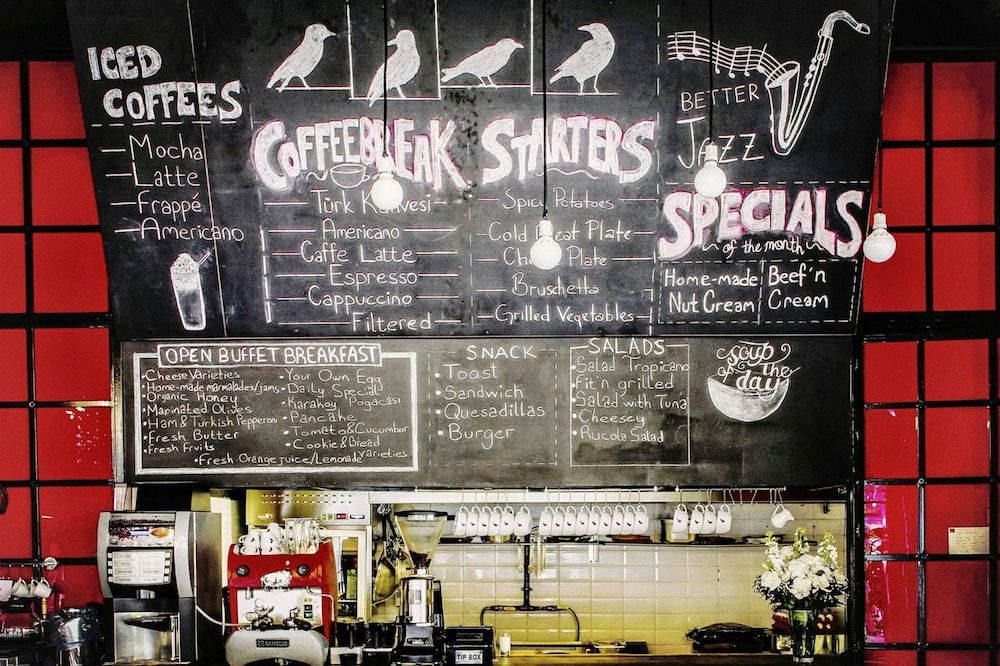 ICED
COFFEES
Mocha
Latte
Frappé
Americano
COFFEEBREAK
Türk
Americano
Caffe Latte
Espresso
Cappuccino
Filtered
STARTERS
Spicy Potatoes
Cold Plate
Plate
Bruschetta
Grilled Vegetables
BETTER
JAZZ
SPECIALS
of the month
Home-made
Nut Cream
Beef'n
Cream
OPEN BUFFET BREAKFAST
Cheese Varieties
Home-made marmalades/jams
Organic Honey
Marinated Olives
Ham & Turkish Pepperoni
Fresh Butter
Fresh Fruits
Your Own Egg
Daily Special
Karakoy Pogacası
Pancake
Tomato&Cucumber
Cookie&Bread
Fresh Orange juice/Lemonade varieties
SNACK
Toast
Sandwich
Quesadillas
Burger
SALADS
Salad Tropicano
Fit'n grilled
Salad with Tuna
Cheesey
Rucola Salad
Soup
OF
THE
day
RANCILIO
TIP BOX